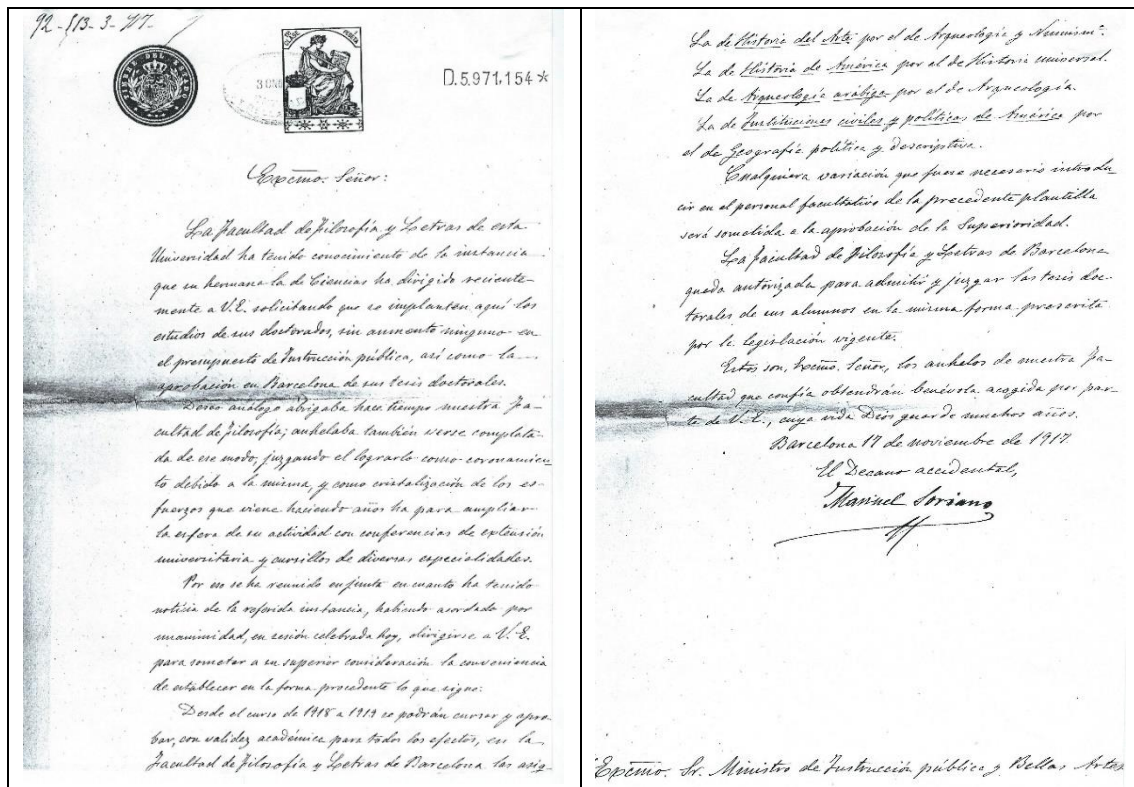 92-513-3-717.
TIMBRE DEL ESTADO
D.5.971,154*
Excmo. Señor:
La Facultad de Filosofía y Letras de esta
Universidad ha tenido conocimiento de la instancia
que su hermana la de Ciencias ha dirigido reciente-
mente a V.E. solicitando que se implanten aquí los
estudios de sus doctorados, sin aumento ninguno en
el presupuesto de Instrucción pública, así como la
aprobación en Barcelona de sus tesis doctorales.
Deseo análogo abrigaba hace tiempo nuestra Fa-
cultad de Filosofía; anhelaba también verse completa-
da de ese modo, juzgando el lograrlo como coronamien-
to debido a la misma, y como cristalización de los es-
fuerzos que viene haciendo años ha para ampliar
la esfera de su actividad con conferencias de extensión
universitaria y cursillos de diversas especialidades.
Por eso se ha reunido en Junta en cuanto ha tenido
noticia de la referida instancia, habiendo acordado por
unanimidad, en sesión celebrada hoy, dirigirse a V.E.
para someter a su superior consideración la conveniencia
de establecer en la forma procedente lo que sigue:
Desde el curso de 1918 a 1919 se podrán cursar y apro-
bar, con validez académica para todos los efectos, en la
Facultad de Filosofía y Letras de Barcelona las asig-
La de Historia del Arte por el de Arqueología y Numismª.
La de Historia de América por el de Historia universal.
La de Arqueología arábiga por el de Arqueología.
La de Instituciones civiles y políticas de América por
el de Geografía política y descriptiva.
Cualquiera variación que fuese necesario introdu-
cir en el personal facultativo de la precedente plantilla
será sometida a la aprobación de la Superioridad.
La Facultad de Filosofía y Letras de Barcelona
queda autorizada para admitir y juzgar las tesis doc-
torales de sus alumnos en la misma forma prescrita
por la legislación vigente.
Estos son, Excmo. Señor, los anhelos de nuestra Fa-
cultad que confía obtendrán benévola acogida por par-
te de V.E., cuya vida Dios guarde muchos años.
Barcelona 17 de noviembre de 1917.
El Decano accidental,
Manuel Soriano
Excmo. Sr. Ministro de Instrucción pública y Bellas Artes